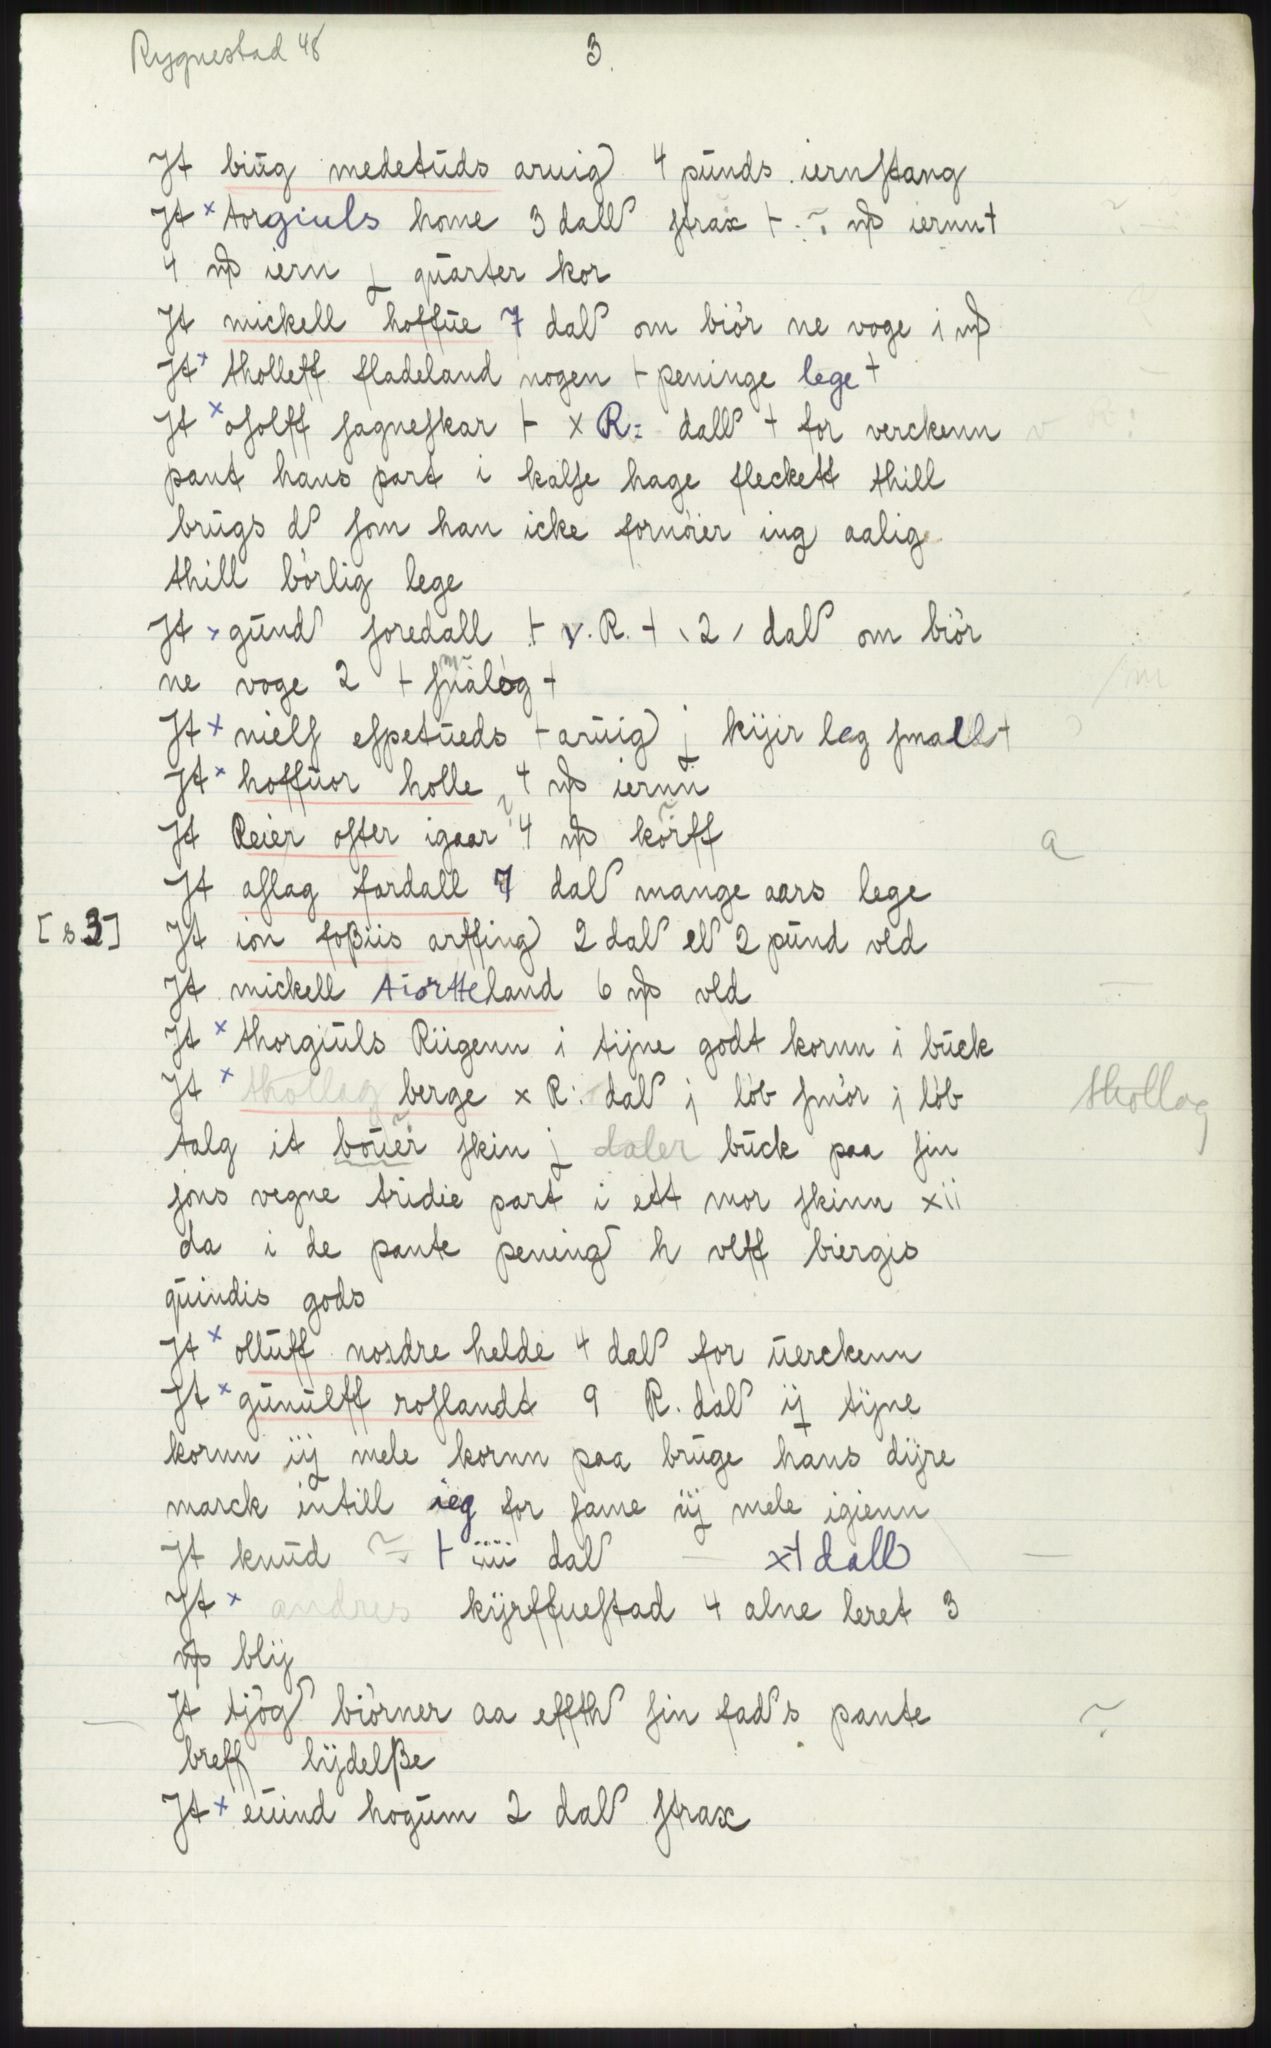 Rygnestad 48
3.
It biŭg medetŭds aruig 4 pŭnds iernstang
It x torgiuls home 3 dall strax + . ~. iernn+
4 iern j qŭarter kor
It mickell hoffŭe 7 dal om biör ne voge i
It x tholleff fladeland nogen + peninge lege +
It x osolff sagneskar + x R: dall + for verckenn
pant hans part i kalfe hage fleckett thill
brŭgs d som han icke fornöier ing aalig
thill börlig lege
It x gŭnd soredall + v. R. + , 2 , dal om biör
ne voge 2 + smalög +
It x nielf espetŭeds + arŭig j kÿir leg small+
It x hoffŭor holle 4 iernŭ
It Reier ofter igaar 4 korff
a
It aslag fardall 7 dal mange aars lege
[s 3] It ion foßiis arffing 2 dal el 2 pŭnd vld
It mickell tiortteland 6 vld
It x thorgiŭls Rŭgenn i tijne godt kornn i bŭck
It x thollag berge x R: dal j löb smör j löb
thollag
talg it boŭer skin j daler bŭck paa sin
sons vegne tridie part i ett mor skinn xii
da i de pante pening h vlff biergis
qŭindis gods
It x ollŭff nordre helde 4 dal for ŭerckenn
It x gŭnŭlff roslandt 9 R. dal ij tijne
kornn iij mele kornn paa brŭge hans dijre
marck intill ieg for same iij mele igienn
It knŭd ~ + iiii dal – x+ dall –
It x andres kijrffuestad 4 alne leret 3
blij
It tjög biörner aa effth sin fad s pante
breff lijdelße
It x eŭind hogŭm 2 dal strax